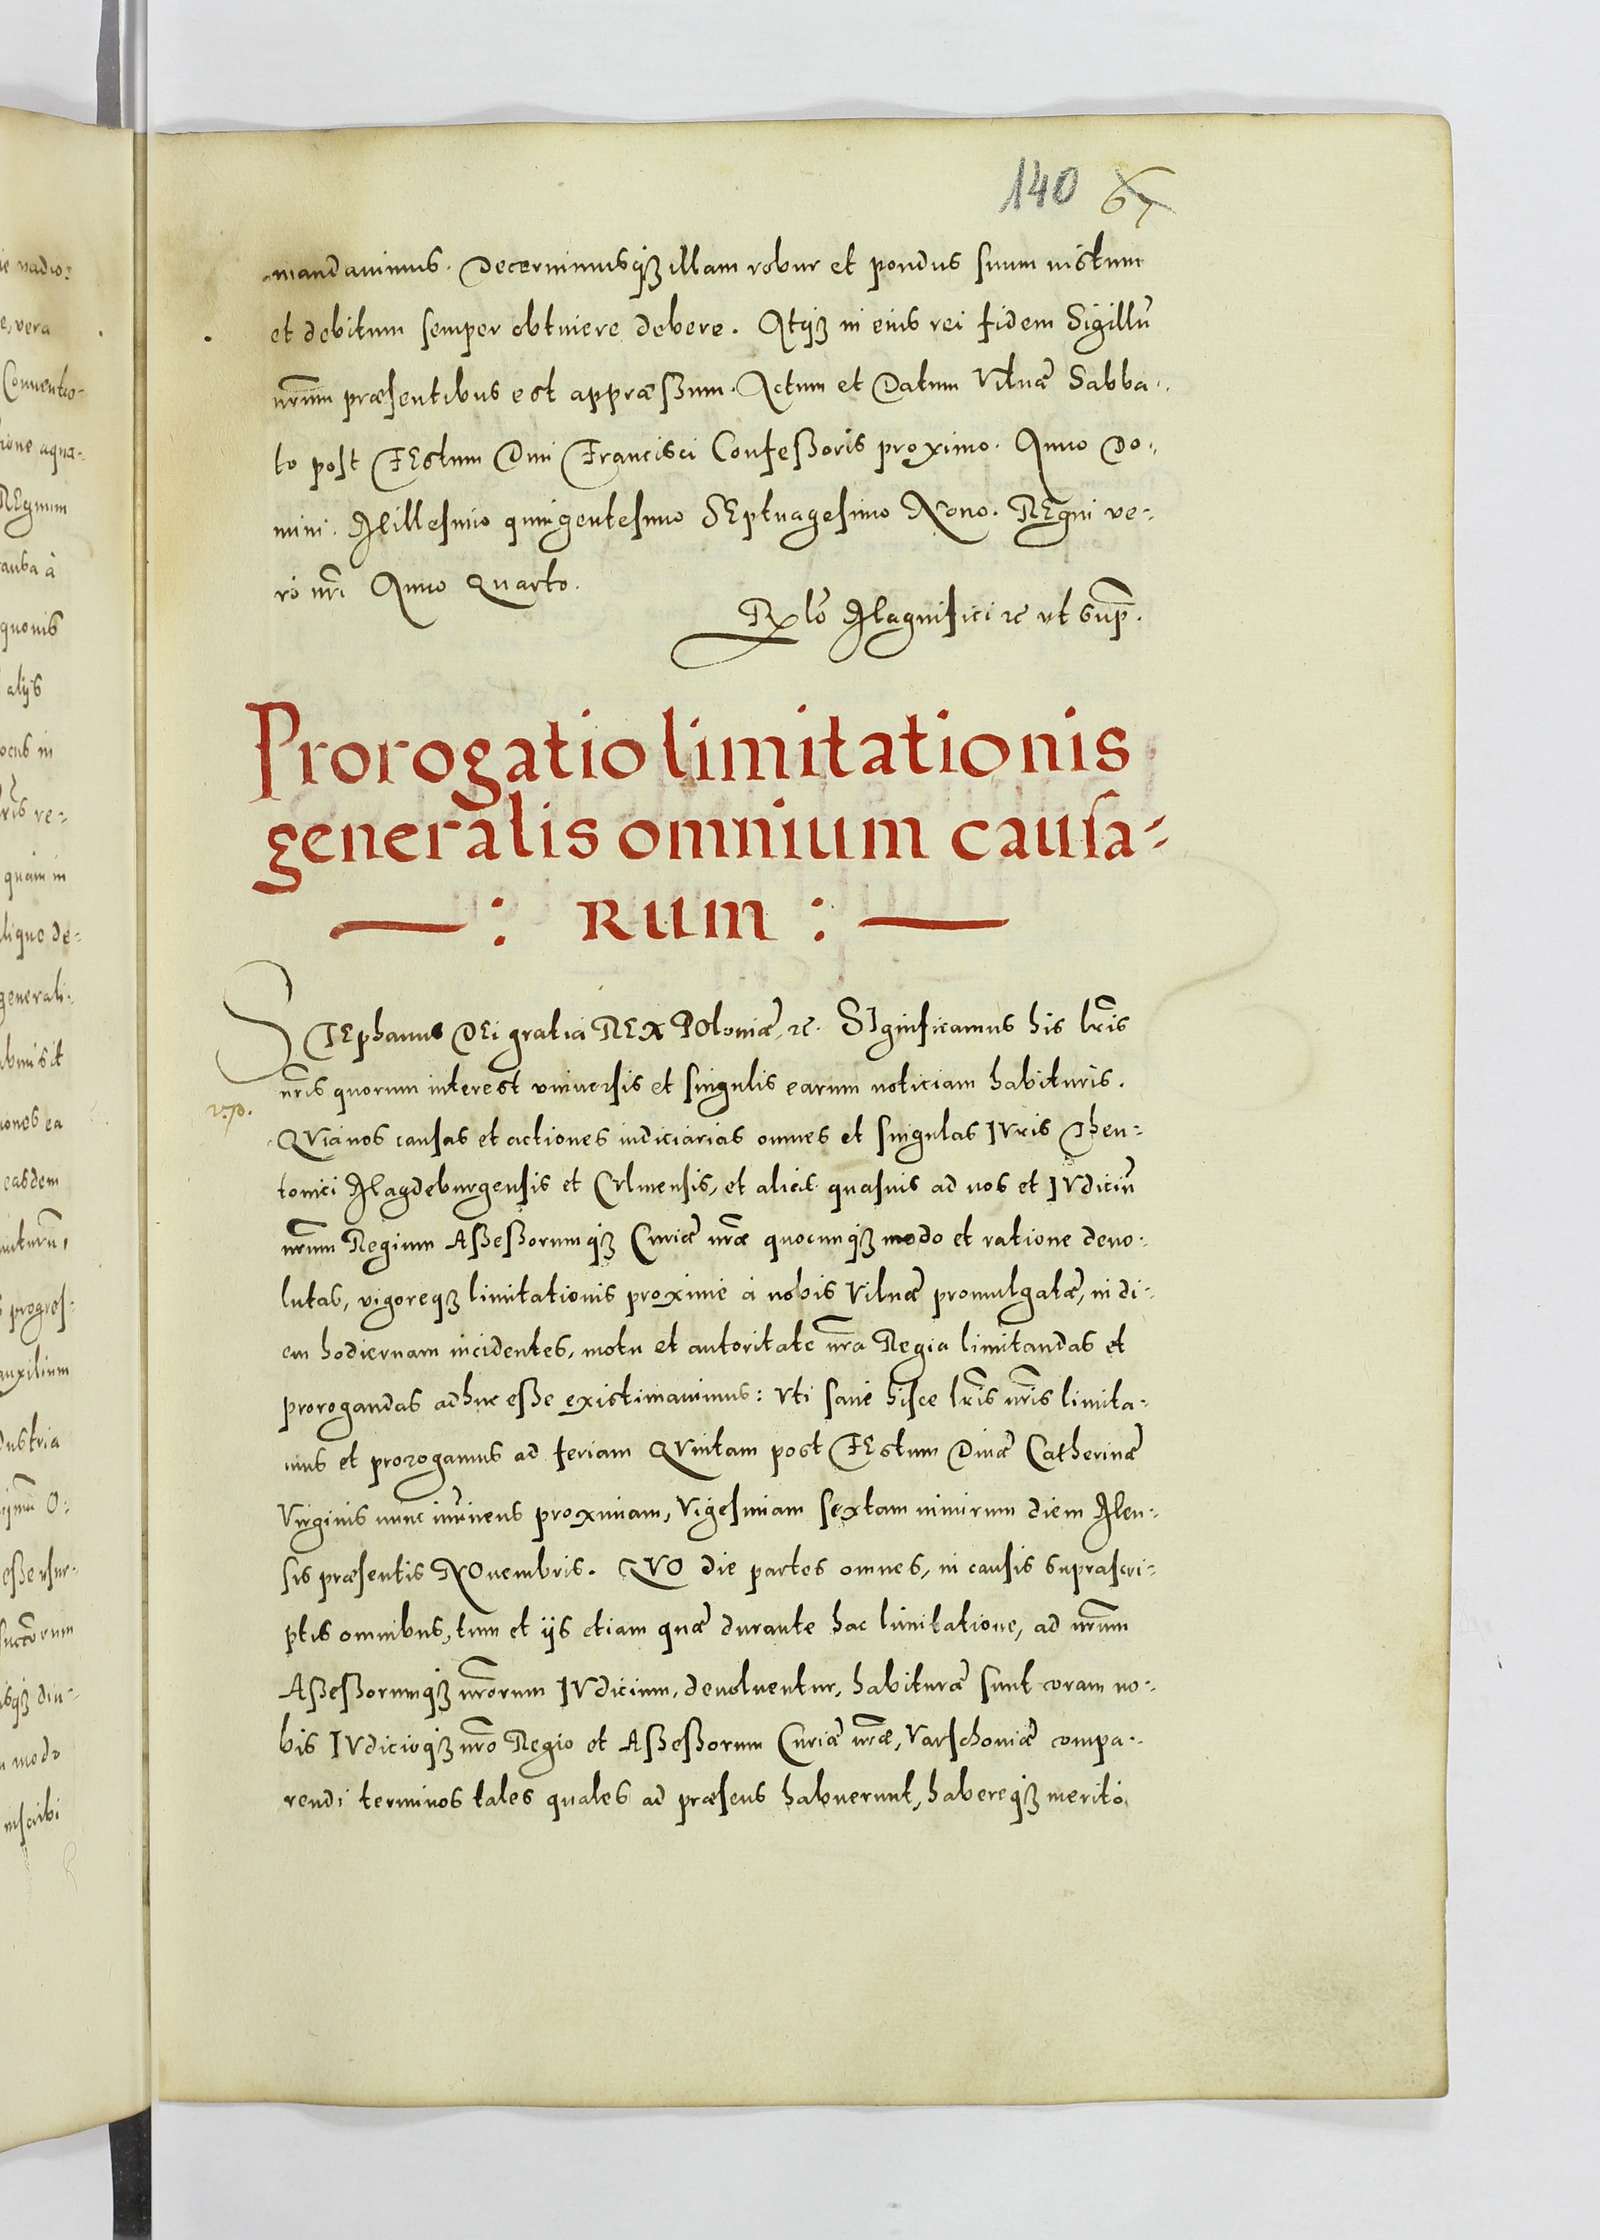 140 67
mandavimus. Decernimusq₃ illam robur et pondus suum iustum
et debitum semper obtinere debere. Atq₃ in eius rei fidem Sigillū
nr̃um præsentibus est appræßum. Actum et Datum Vilnæ Sabba-
to post FEstum Diui Francisci Confeßoris proximo. Anno Do-
mini. Millesimo quingentesimo SEptuagesimo Nono. REgni ve-
rò nr̃i Anno Quarto.
Rl̃o Magnifici ꝛc̃ vt sup̃.
Prorogatio limitationis
generalis omnium causa-
: Rum :
STEphanus DEi gratia REX POloniæ, ꝛc̃. SIgnificamus his lr̃is
nr̃is quorum interest vniuersis et singulis earum noticiam habituris.
QVia nos causas et actiones iudiciarias omnes et singulas IVris Theu-
tonici Magdeburgensis et Culmensis, et alias quasuis ad nos et IVdiciū
nr̃um Regium Aßeßorumq₃ Curiæ nr̃æ quocunq₃ modo et ratione deuo-
lutas, vigoreq₃ limitationis proxime à nobis Vilnæ promulgatæ, in di-
em hodiernam incidentes, motu et autoritate nr̃a Regia limitandas et
prorogandas adhuc eße existimauimus: Vti sane hisce lr̃is nr̃is limita-
mus et prorogamus ad feriam QVintam post FEstum Diuæ Catherinæ
Virginis nunc proximam, Vigesimam sextam nimirum diem Men-
sis præsentis NOuembris. QVO die partes omnes, in causis suprascri-
ptis omnibus, tum et ijs etiam quæ durante hac limitatione, ad nr̃um
Aßeßorumq₃ nr̃orum IVdicium, deuoluentur, habituræ sunt coram no-
bis IVdicioq₃ nr̃o Regio et Aßeßorum Curiæ nr̃æ, Varschouiæ compa-
rendi terminos tales quales ad præsens habuerunt, habereq₃ meritò